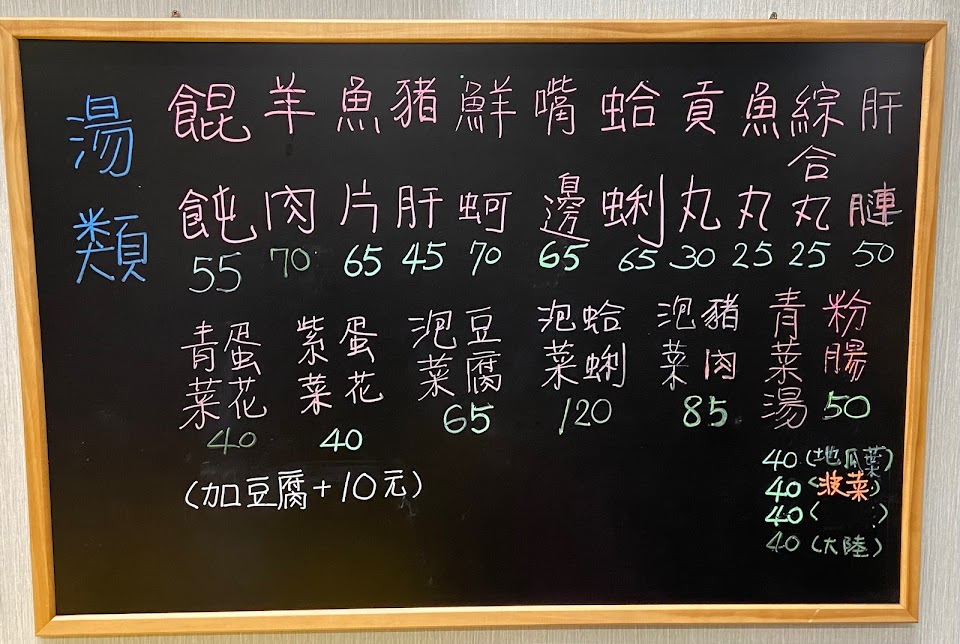 湯類
餛飩 55
羊肉 70
魚片 65
豬肝 45
鮮蚵 70
嘴邊 65
蛤蜊 65
貢丸 30
魚丸 25
綜合丸 25
肝 50
青菜蛋花 40
紫菜蛋花 40
泡菜豆腐 65
泡菜蛤蜊 120
泡菜豬肉 85
青菜湯
40(地瓜葉)
40(菠菜)
40( )
40(大陸)
粉腸 50
(加豆腐+10元)